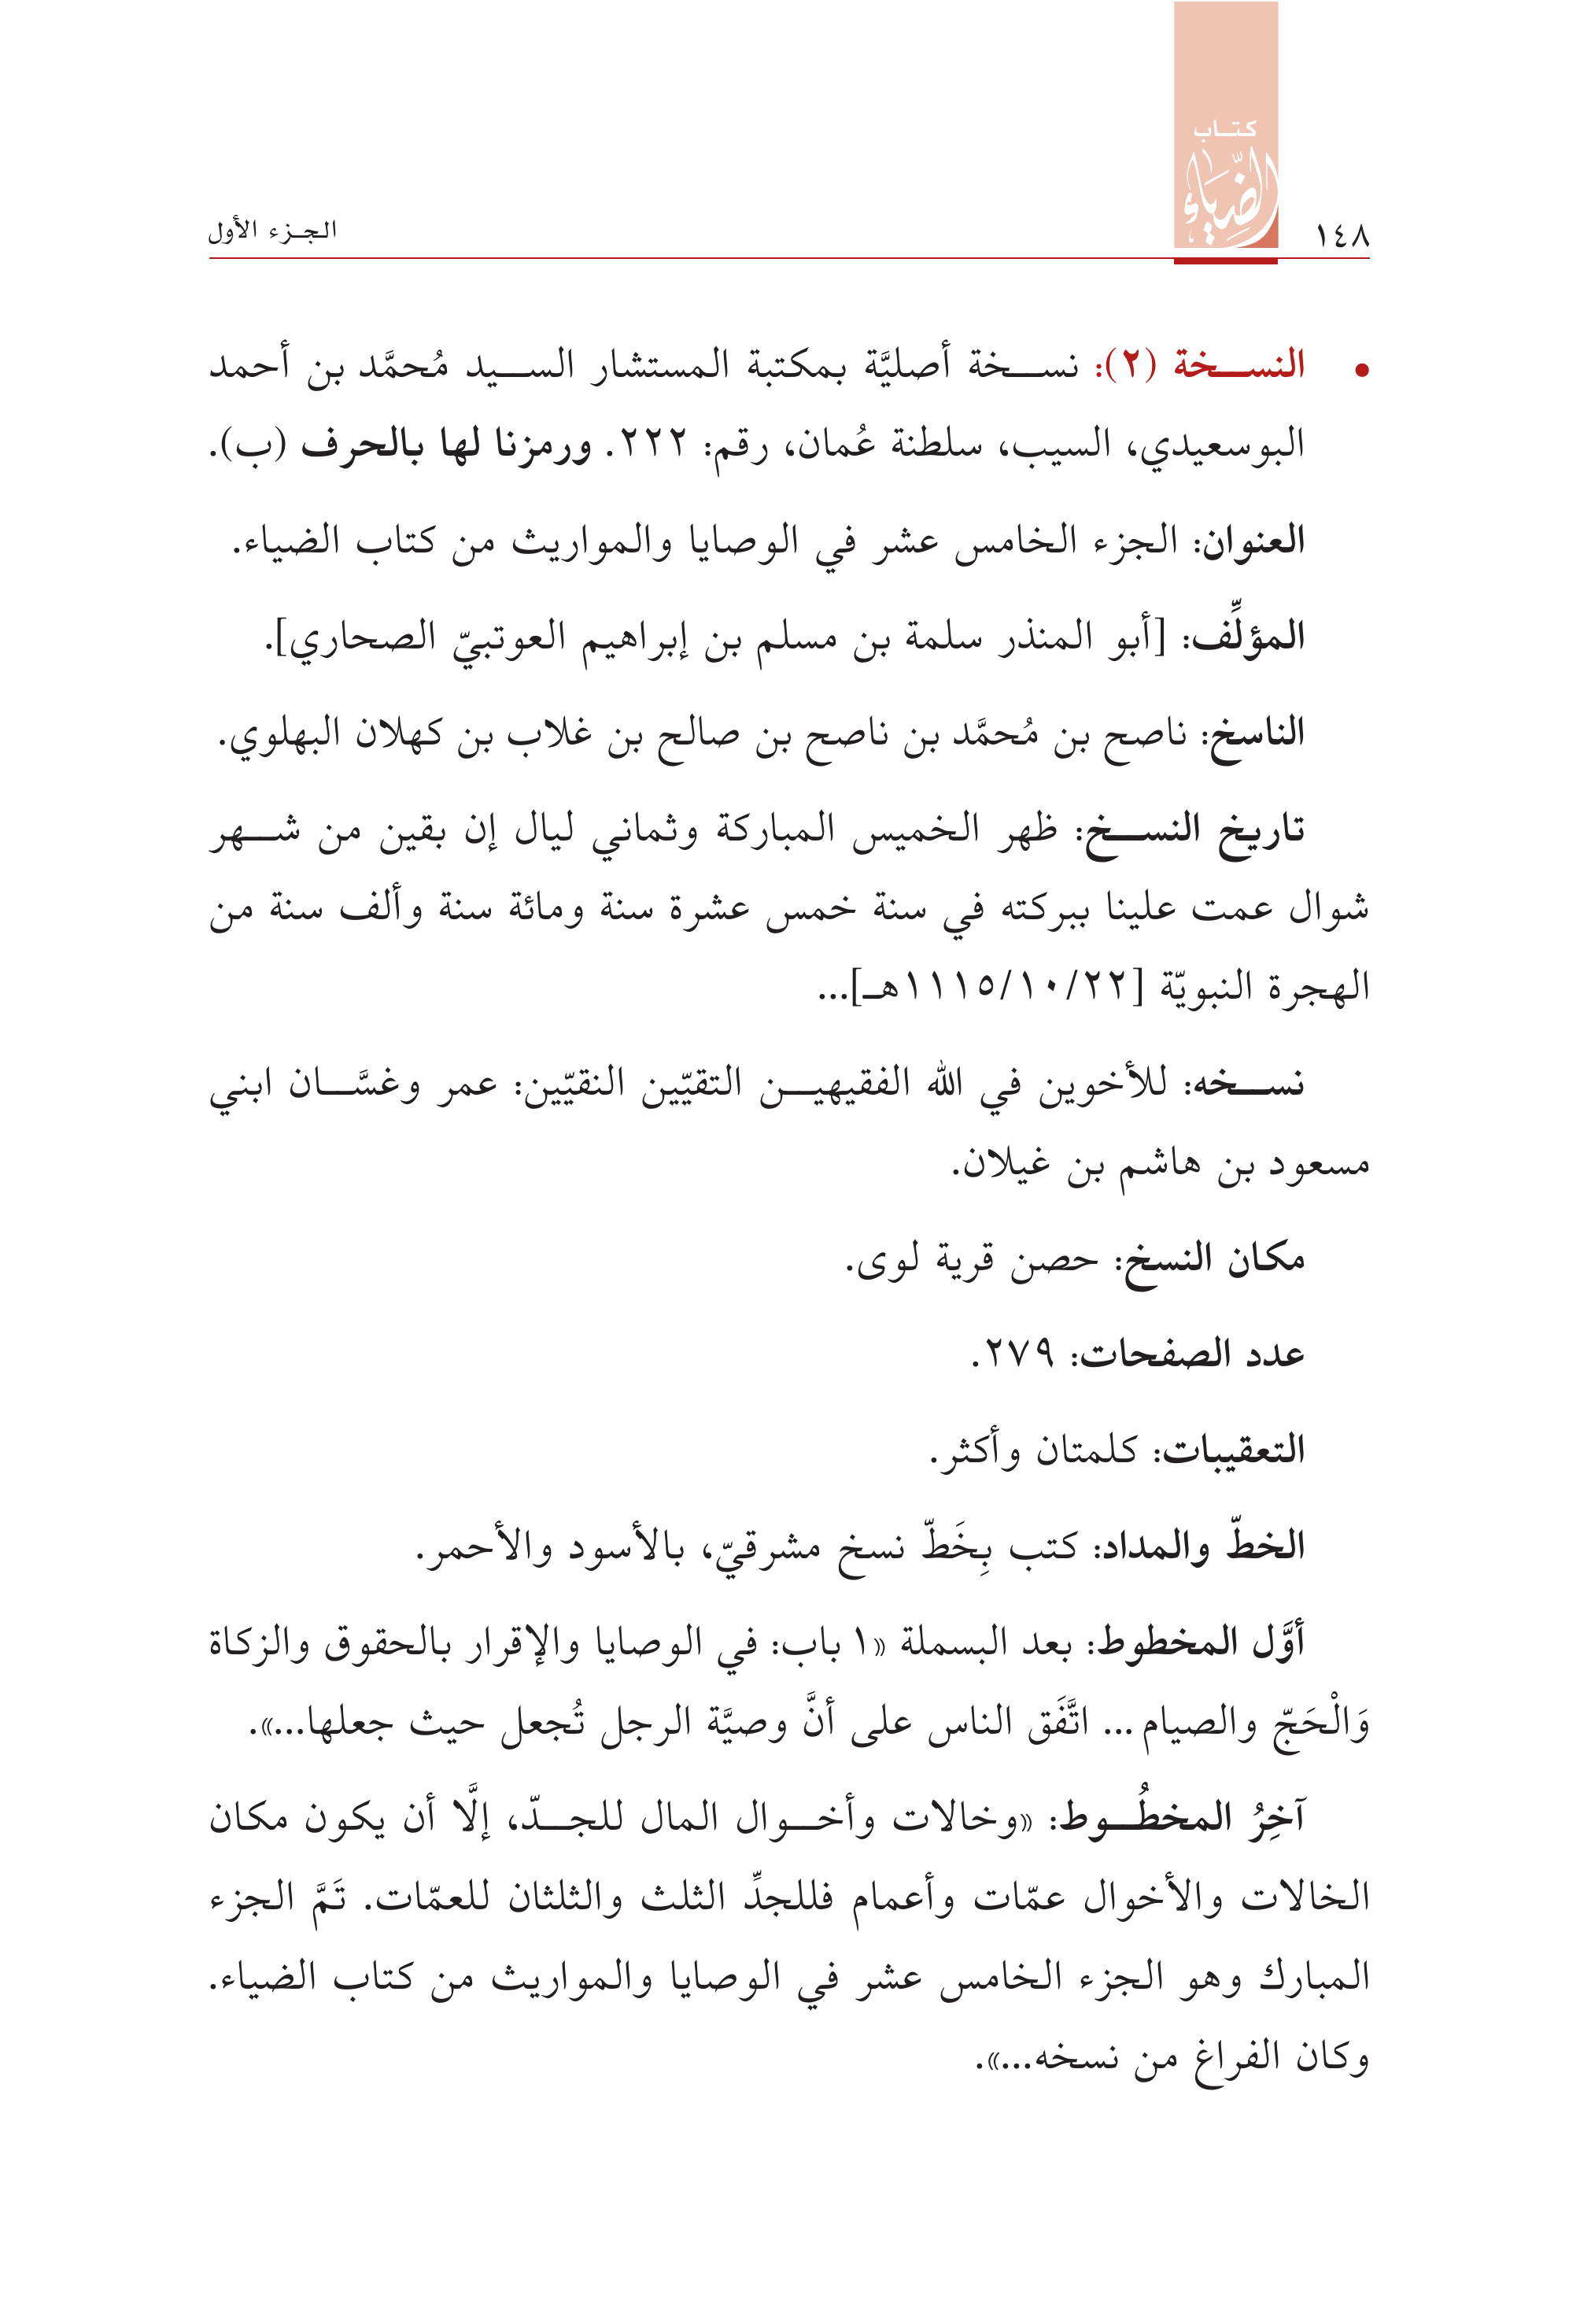 ١٤٨
كتاب
الضِّيَاء
الجزء الأول
• النسخة (٢): نسخة أصليَّة بمكتبة المستشار السيد مُحمَّد بن أحمد
البوسعيدي، السيب، سلطنة عُمان، رقم: ٢٢٢. ورمزنا لها بالحرف (ب).
العنوان: الجزء الخامس عشر في الوصايا والمواريث من كتاب الضياء.
المؤلِّف: [أبو المنذر سلمة بن مسلم بن إبراهيم العوتبيّ الصحاري].
الناسخ: ناصح بن مُحمَّد بن ناصح بن صالح بن غلاب بن كهلان البهلوي.
تاريخ النسخ: ظهر الخميس المباركة وثماني ليال إن بقين من شهر
شوال عمت علينا ببركته في سنة خمس عشرة سنة ومائة سنة وألف سنة من
الهجرة النبويّة [١١١٥/١٠/٢٢هـ]...
نسخه: للأخوين في الله الفقيهين التقيّين النقيّين: عمر وغسَّان ابني
مسعود بن هاشم بن غيلان.
مكان النسخ: حصن قرية لوى.
عدد الصفحات: ٢٧٩.
التعقيبات: كلمتان وأكثر.
الخطّ والمداد: كتب بِخَطّ نسخ مشرقيّ، بالأسود والأحمر.
أوَّل المخطوط: بعد البسملة «١ باب: في الوصايا والإقرار بالحقوق والزكاة
وَالْحَجّ والصيام ... اتَّفَق الناس على أنَّ وصيَّة الرجل تُجعل حيث جعلها...».
آخِرُ المخطُوط: «وخالات وأخوال المال للجدّ، إلَّا أن يكون مكان
الخالات والأخوال عمّات وأعمام فللجدِّ الثلث والثلثان للعمّات. تَمَّ الجزء
المبارك وهو الجزء الخامس عشر في الوصايا والمواريث من كتاب الضياء.
وكان الفراغ من نسخه...».